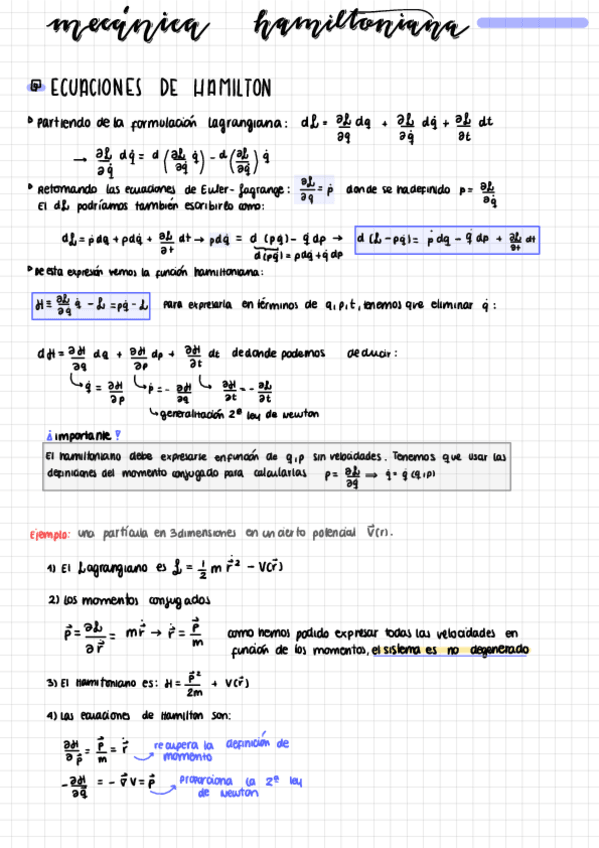 mecánica hamiltoniana
ECUACIONES DE HAMILTON
Partiendo de la formulación Lagrangiana: dℒ = ∂ℒ/∂q dq + ∂ℒ/∂q̇ dq̇ + ∂ℒ/∂t dt
→ ∂ℒ/∂q̇ dq̇ = d(∂ℒ/∂q̇ q̇) - d(∂ℒ/∂q̇) q̇
Retomando las ecuaciones de Euler-Lagrange: ∂ℒ/∂q = ṗ donde se ha definido p = ∂ℒ/∂q̇
El dℒ podríamos también escribirlo como:
dℒ = ṗdq + pdq̇ + ∂ℒ/∂t dt → pdq̇ = d(pq̇) - q̇dp → d(ℒ-pq̇) = ṗdq - q̇dp + ∂ℒ/∂t dt
d(pq̇) = pdq̇ + q̇dp
De esta expresión vemos la función hamiltoniana:
H ≡ ∂ℒ/∂q̇ q̇ - ℒ = pq̇ - ℒ para expresarla en términos de q, p, t, tenemos que eliminar q̇:
dH = ∂H/∂q dq + ∂H/∂p dp + ∂H/∂t dt de donde podemos deducir:
q̇ = ∂H/∂p ṗ = - ∂H/∂q ∂H/∂t = - ∂ℒ/∂t
generalización 2ª ley de Newton
¡importante!
El hamiltoniano debe expresarse en función de q, p sin velocidades. Tenemos que usar las
definiciones del momento conjugado para calcularlas p = ∂ℒ/∂q̇ ⟹ q̇ = q̇(q,p)
Ejemplo: una partícula en 3 dimensiones en un cierto potencial V(r).
1) El Lagrangiano es ℒ = 1/2 m ṙ² - V(r)
2) Los momentos conjugados
p = ∂ℒ/∂ṙ = mṙ → ṙ = p/m como hemos podido expresar todas las velocidades en
función de los momentos, el sistema es no degenerado
3) El Hamiltoniano es: H = p²/2m + V(r)
4) Las ecuaciones de Hamilton son:
∂H/∂p = p/m = ṙ recupera la definición de
momento
-∂H/∂q = -∇V = ṗ proporciona la 2ª ley
de Newton